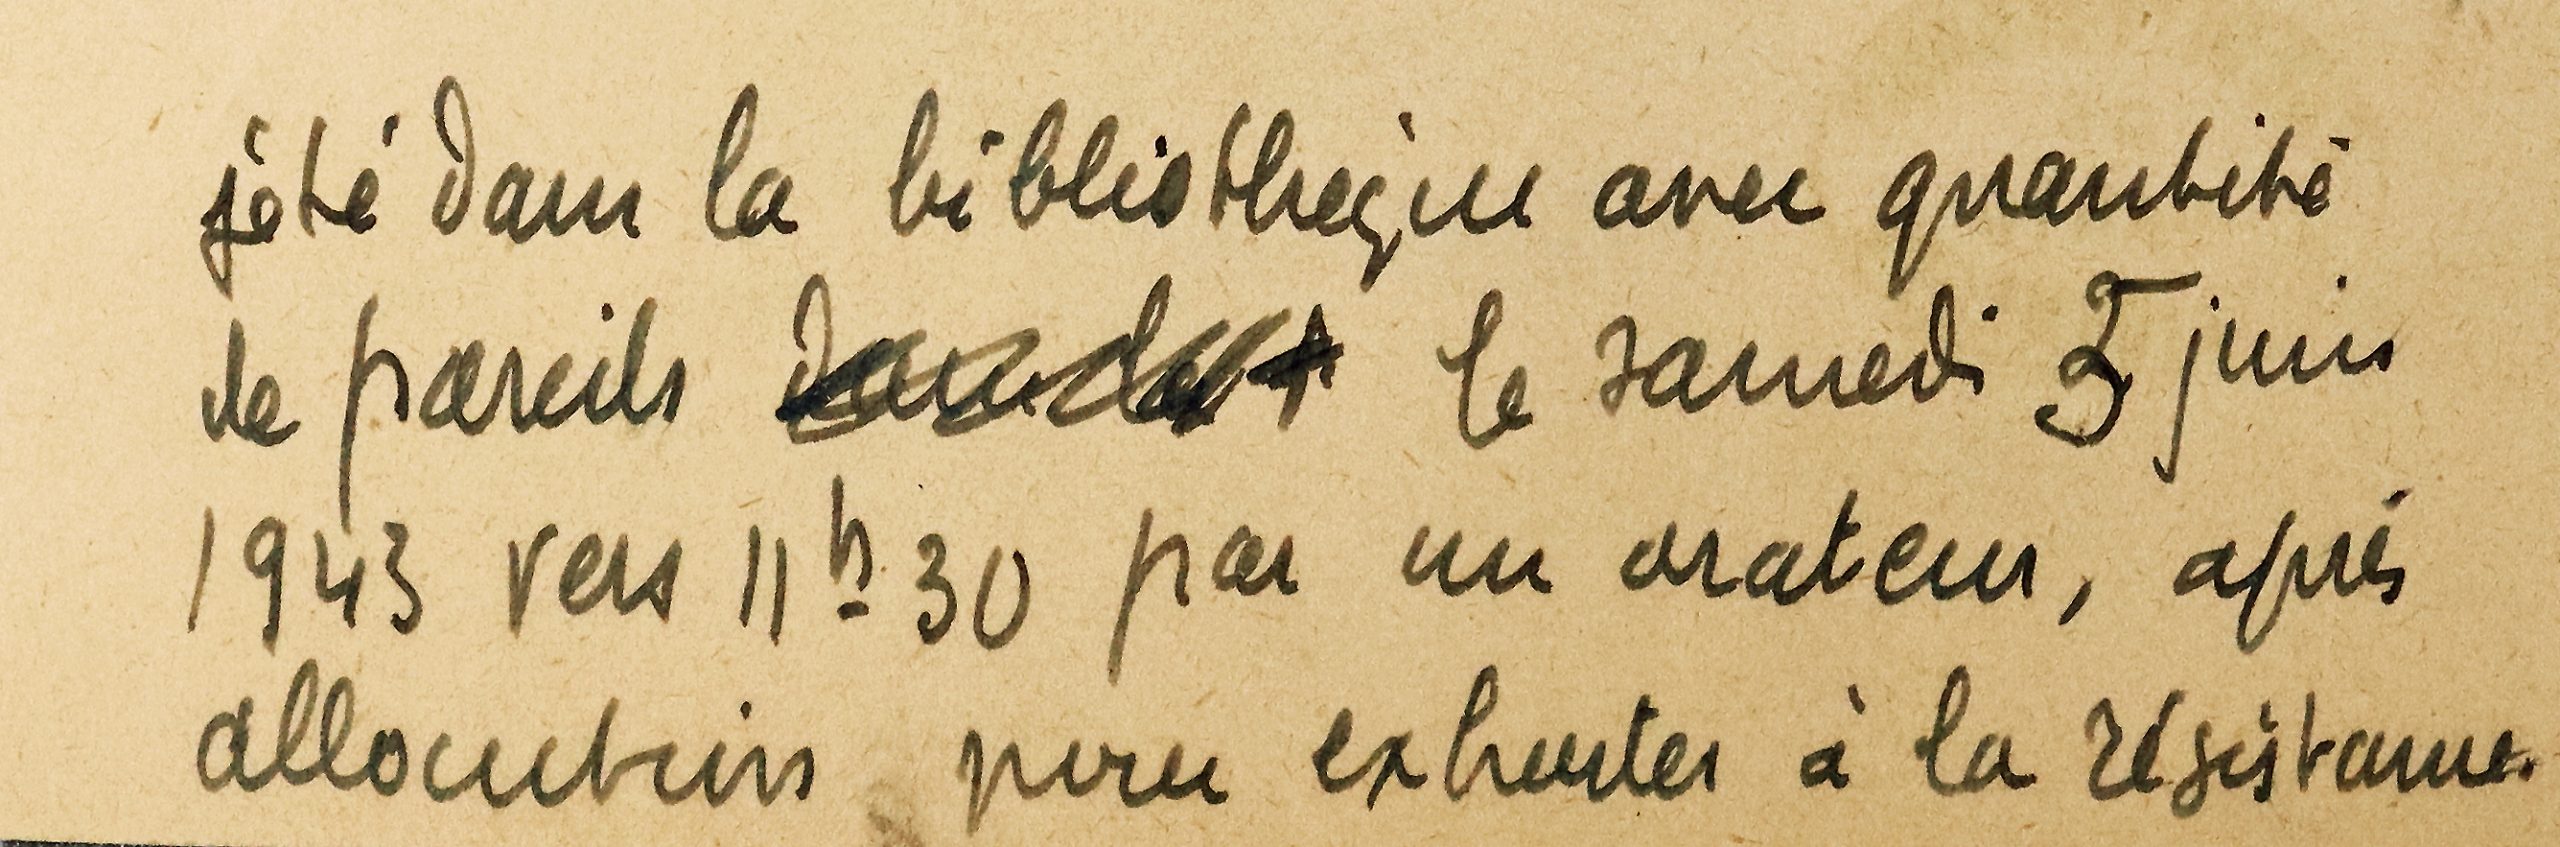 jeté dans la bibliothèque avec quantité
de pareils le samedi 5 juin
1943 vers 11h 30 par un orateur, après
allocution pour exhorter à la résistance.